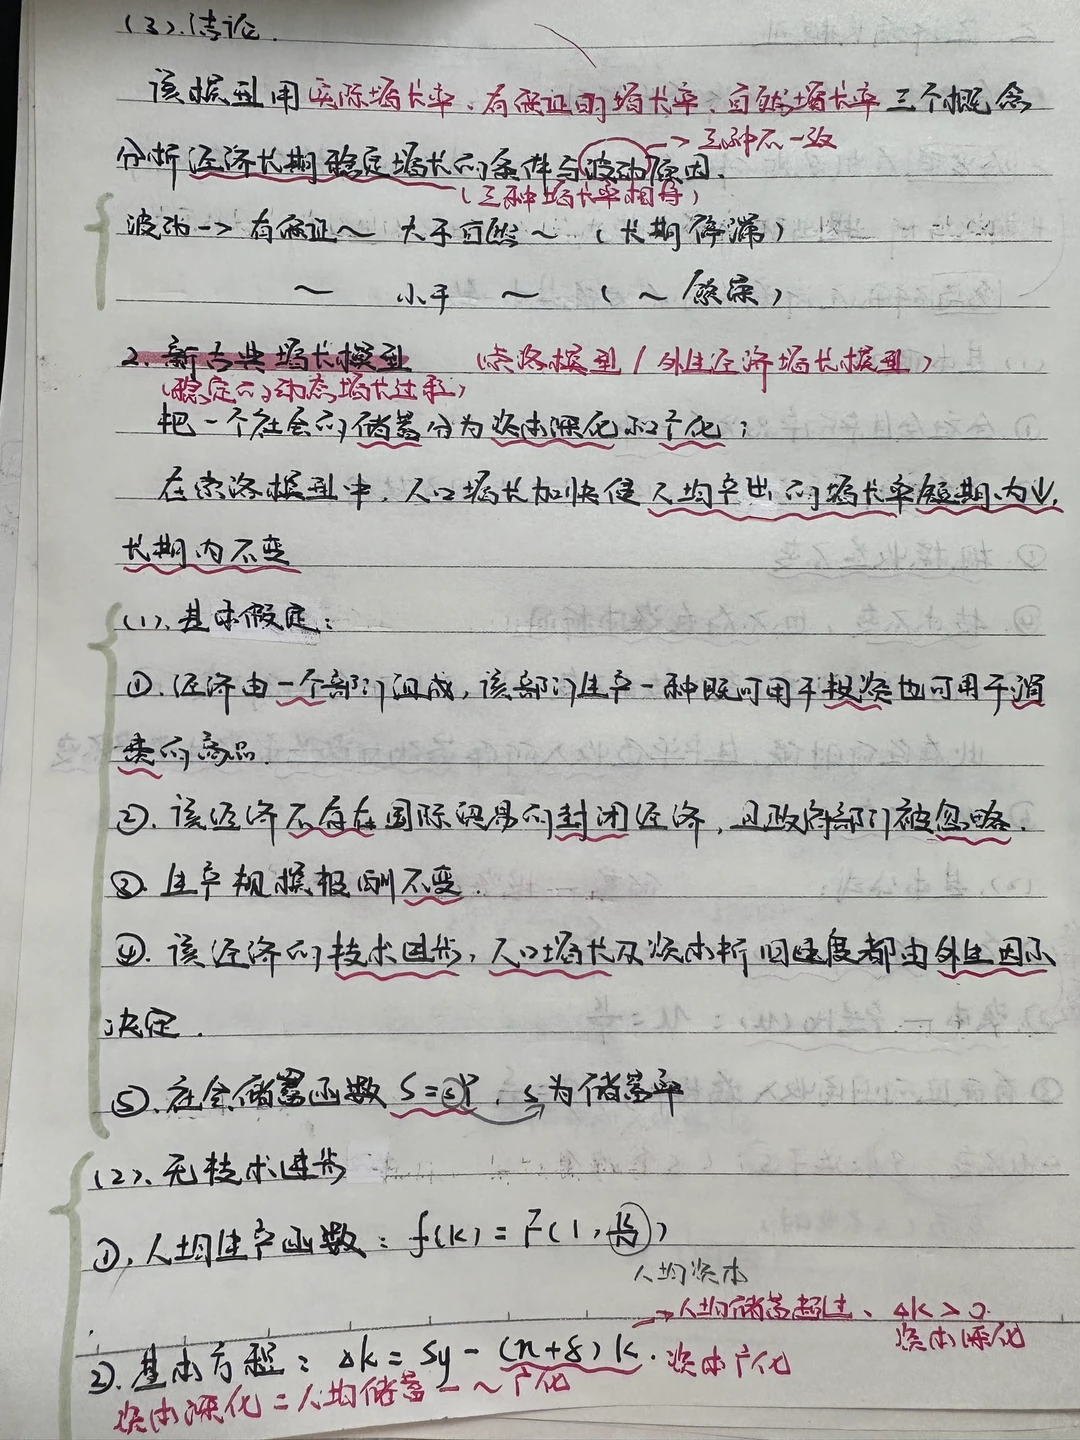 (3).结论.
该模型用实际增长率、有保证的增长率、自然增长率三个概念
→三种不一致
分析经济长期稳定增长的条件与波动原因.
(三种增长率相等)
波动→有保证~ 大于自然~ (长期停滞)
~ 小于 ~ (~繁荣)
2.新古典增长模型 (索洛模型/外生经济增长模型)
(稳定的动态增长过程)
把一个社会的储蓄分为资本深化和广化;
在索洛模型中,人口增长加快使人均产出的增长率短期内↓,
长期内不变
(1).基本假定:
①.经济由一个部门组成,该部门生产一种既可用于投资也可用于消
费的商品.
②.该经济不存在国际贸易的封闭经济,且政府部门被忽略.
③.生产规模报酬不变.
④.该经济的技术进步,人口增长及资本折旧速度都由外生因素
决定.
⑤.社会储蓄函数 S=sY, s为储蓄率
(2)、无技术进步
①,人均生产函数: f(k)=F(1,K/N)
人均资本
→人均储蓄超过、 Δk>0.
资本深化
②.基本方程: Δk=sy-(n+δ)k. 资本广化
资本深化=人均储蓄-~广化